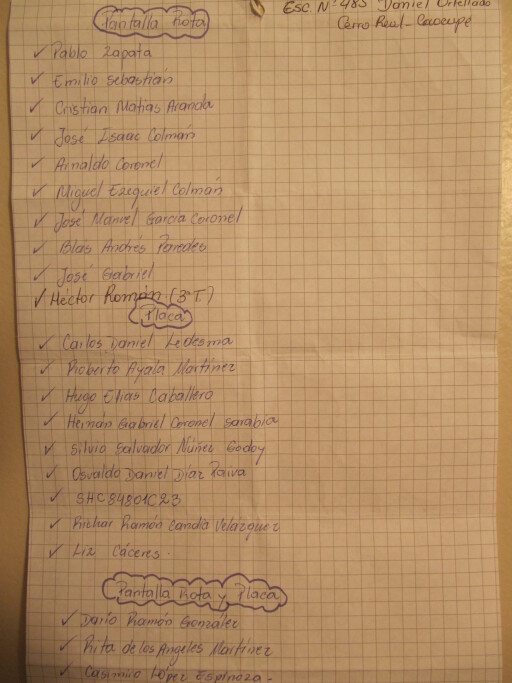 Esc. Nº 485 Daniel Ortellado
Cerro Real - Caacupé
Pantalla Rota
✓ Pablo Zapata
✓ Emilio Sebastián
✓ Cristian Matias Aranda
✓ José Isaac Colmán
✓ Arnaldo Coronel
✓ Miguel Ezequiel Colmán
✓ José Manuel Garcia Coronel
✓ Blas Andrés Paredes
✓ José Gabriel
✓ Héctor Román (3º T.)
Placa
✓ Carlos Daniel Ledesma
✓ Roberto Ayala Martínez
✓ Hugo Elias Caballero
✓ Hernán Gabriel Coronel Sarabia
✓ Silvio Salvador Núñez Godoy
✓ Osvaldo Daniel Díaz Paiva
✓ SHC84801C23
✓ Richar Ramón Candia Velázquez
✓ Liz Cáceres.
Pantalla Rota y Placa
✓ Dario Ramón González
✓ Rita de los Angeles Martínez
✓ Casimiro López Espinoza -